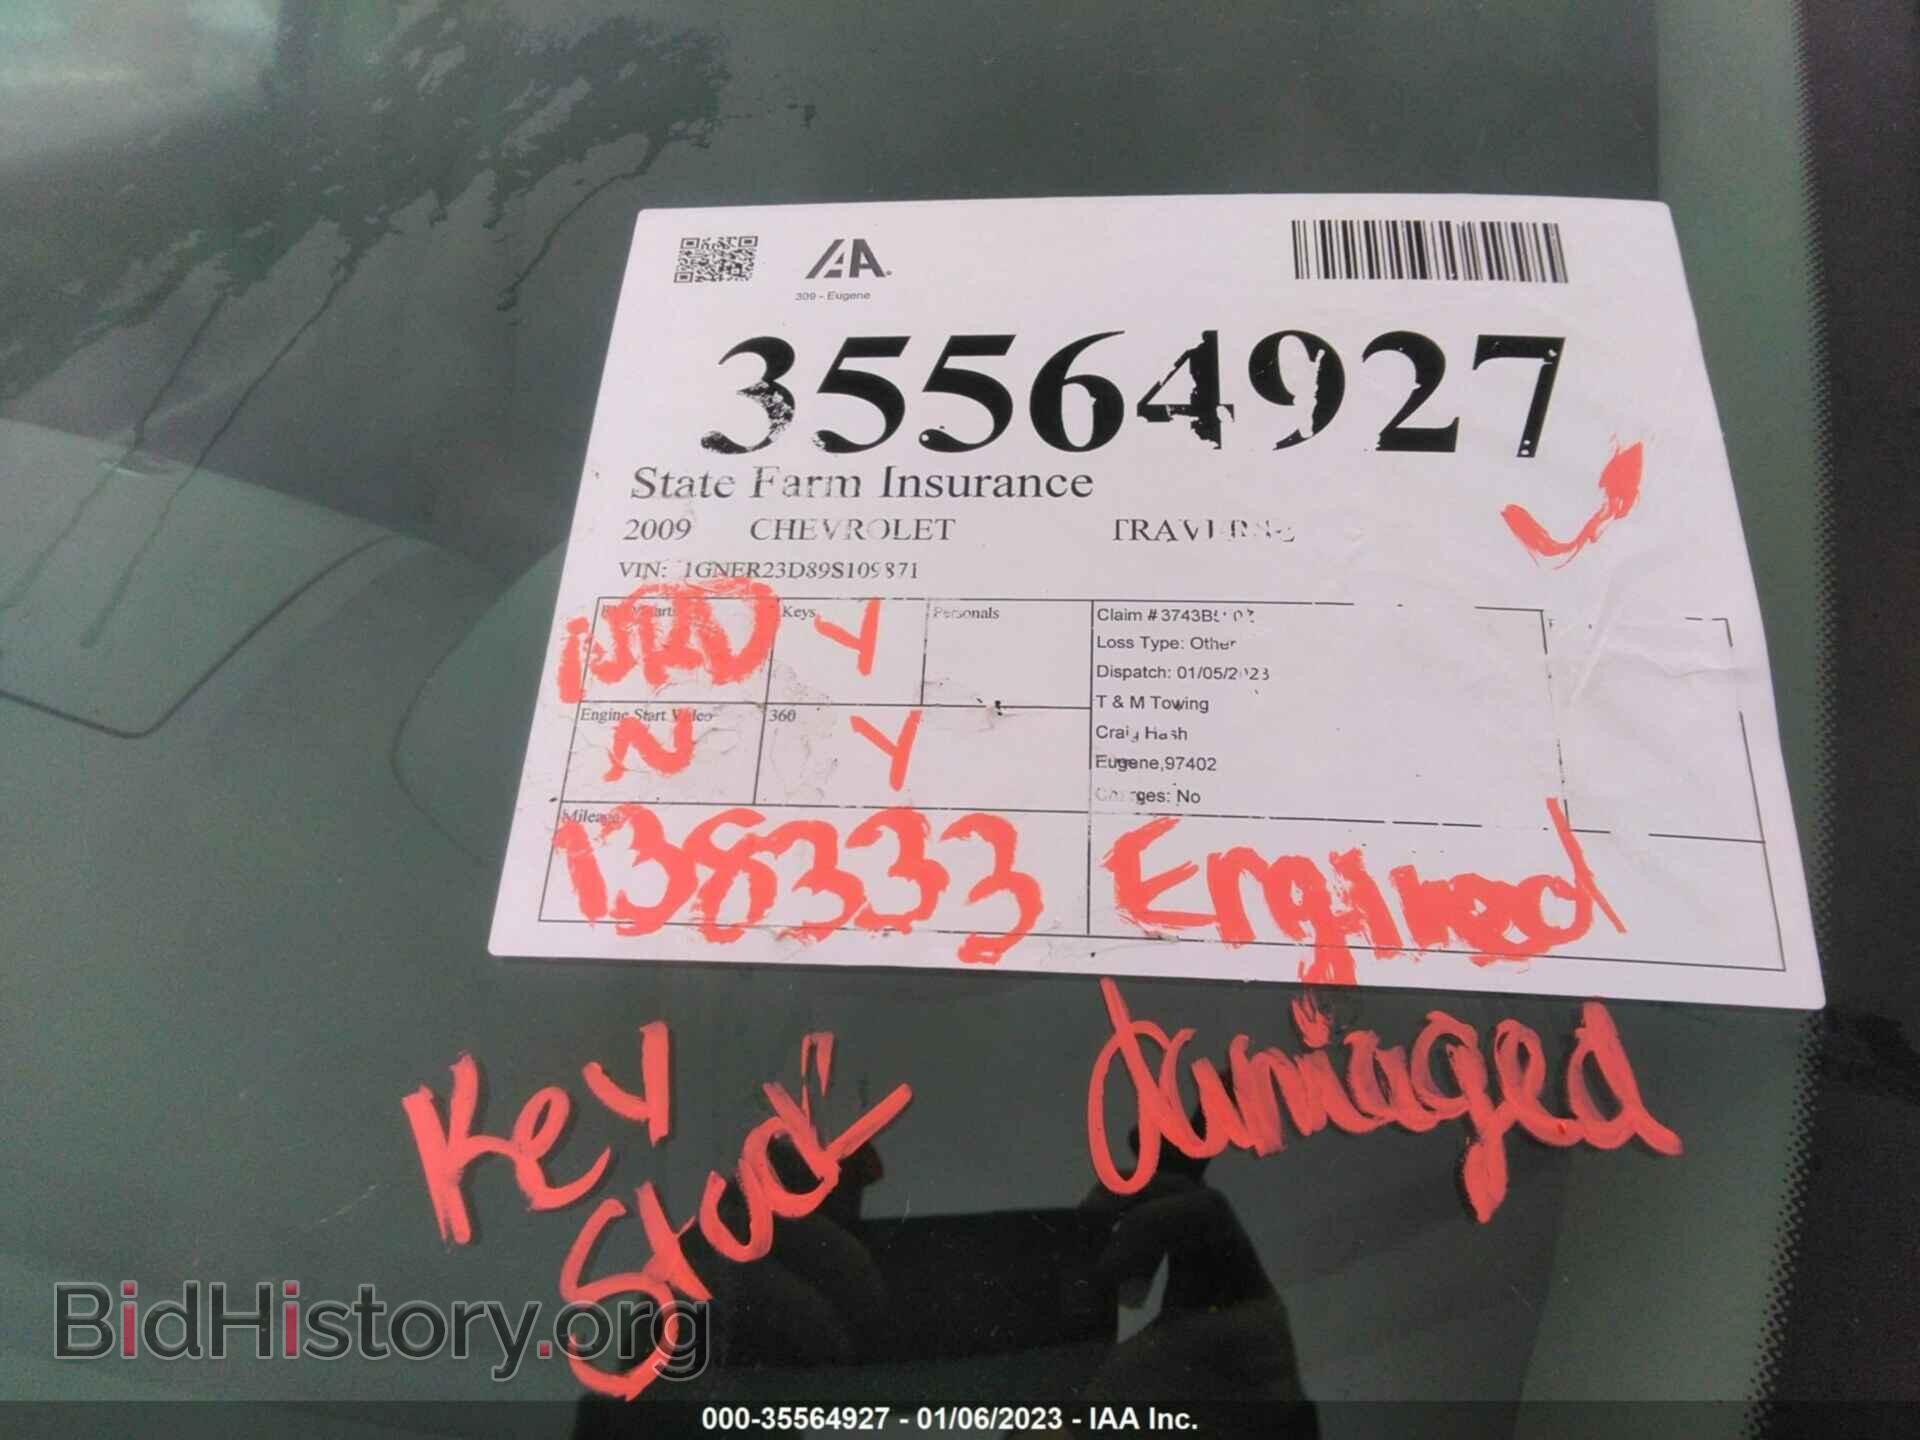 IAA
309 - Eugene
35564927
State Farm Insurance
2009 CHEVROLET TRAVERSE
VIN: 1GNER23D89S109871
Keys Y Personals
Engine Start Video N 360 Y
Mileage 138333
Claim # 3743B
Loss Type: Other
Dispatch: 01/05/2023
T & M Towing
Craig Hash
Eugene,97402
Charges: No
Engined
damaged
Key
Stuck
BidHistory.org
000-35564927 - 01/06/2023 - IAA Inc.